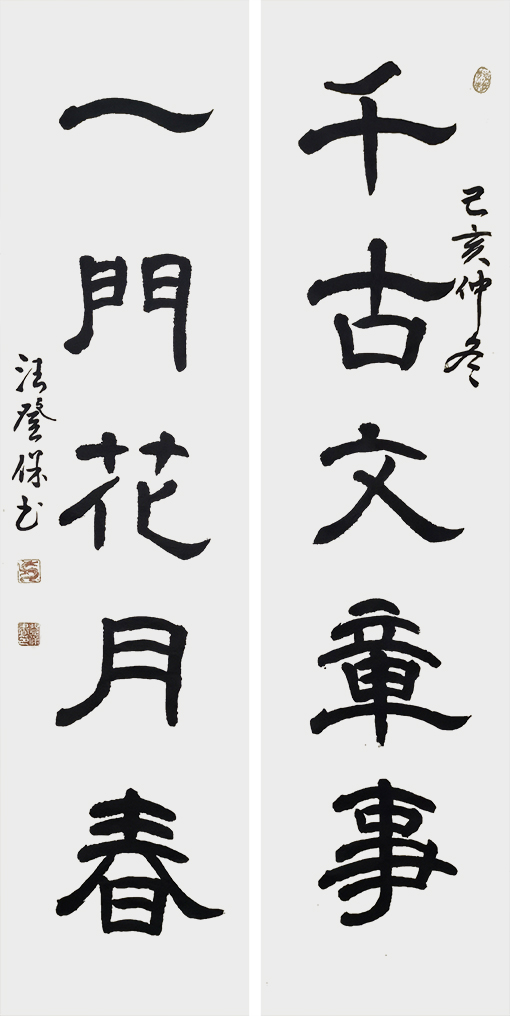 己亥仲冬
千古文章事
一門花月春
汪登保书